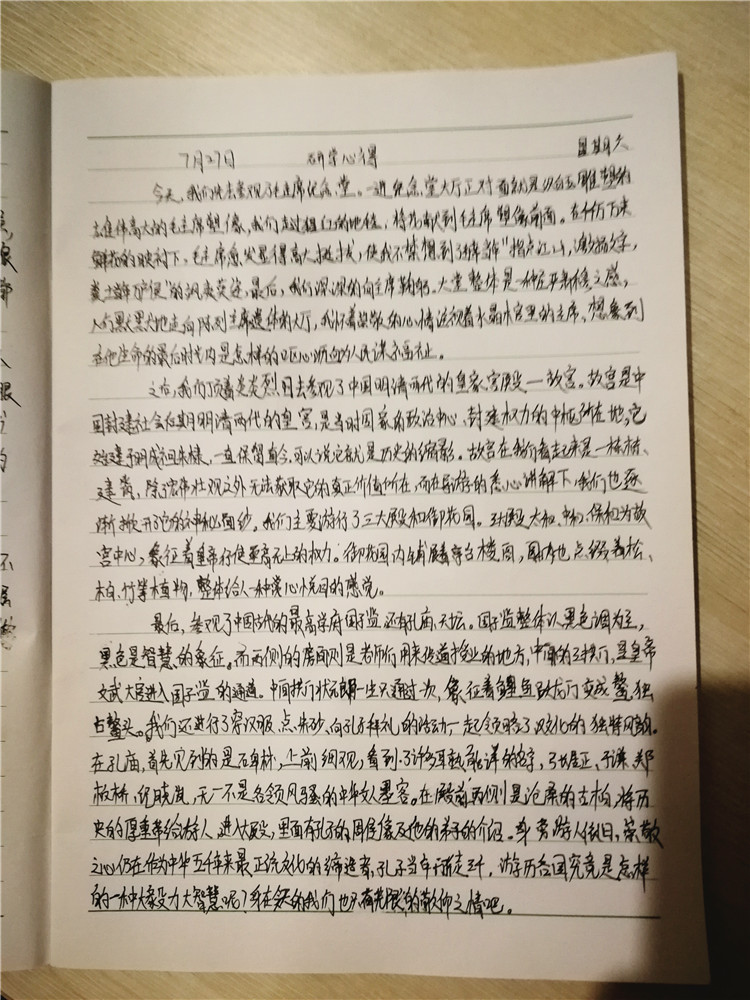 7月27日 研学心得 星期六
今天,我们先去参观了毛主席纪念堂。一进纪念堂大厅正对面就是汉白玉雕塑的
雄伟高大的毛主席塑像,我们走过粗红的地毯,将花献到毛主席塑像前面。在千万万束
鲜花的映衬下,毛主席愈发显得高大挺拔,使我不禁想到了他当年"指点江山,激扬文字,
粪土当年万户侯"的飒爽英姿,最后,我们深深的向主席鞠躬。大堂整体是一种庄严肃穆之感,
人与默默地走向陈列主席遗体的大厅,我怀着崇敬的心情近视着水晶棺里的主席,想象到
在他生命的最后时光内是怎样的呕心沥血为人民谋求福祉。
之后,我们顶着炎炎烈日去参观了中国明清两代的皇家宫殿—故宫。故宫是中
国封建社会后期明清两代的皇宫,是当时国家的政治中心,封建权力的中枢所在地,它
始建于明成祖朱棣,一直保留至今,可以说它就是历史的缩影。故宫在我们看起来是一栋栋
建筑,除了宏伟壮观之外无法获取它的真正价值所在,而在导游的悉心讲解下,我们也逐
渐掀开它的神秘面纱。我们主要游行了三大殿和御花园。三大殿太和、中和、保和为故
宫中心,象征着皇帝行使至高无上的权力。御花园内铺展着亭台楼阁,园内也点缀着松、
柏、竹等植物,整体给人一种赏心悦目的感觉。
最后,参观了中国古代的最高学府国子监还有孔庙、天坛。国子监整体以黑色调为主,
黑色是智慧的象征。而两侧的房间则是老师们用来传道授业的地方,中间的三拱门,是皇帝
文武大官进入国子监的通道。中间拱门状元郎一生只通过一次,象征着鲤鱼跃龙门变成鳌,独
占鳌头。我们还进行了穿汉服、点朱砂、向孔子拜礼的活动,一起领略了汉文化的独特风韵。
在孔庙,首先见到的是石碑林,上前细观,看到了许多耳熟能详的名字,了张居正、于谦、郑
板桥、纪晓岚,无一不是各领风骚的中华文人墨客。在殿前两侧是沧桑的古柏,将历
史的厚重带给游人,进入大殿,里面有孔子的周侄像及他的弟子的介绍。身旁游人依旧,崇敬
之心仍在,作为中华五千年来最正统文化的缔造者,孔子当年行走三千,游学历各国究竟是怎样
的一种大毅力大智慧呢?身在今天的我们也只有无限的敬仰之情吧。